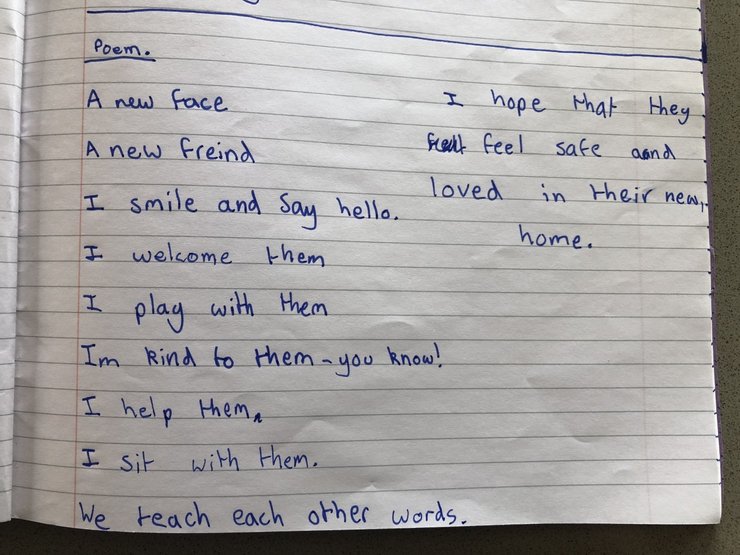 Poem.
A new face
A new freind
I smile and say hello.
I welcome them
I play with them
Im kind to them - you know!
I help them,
I sit with them.
We teach each other words.
I hope that they
feel safe and
loved in their new,
home.